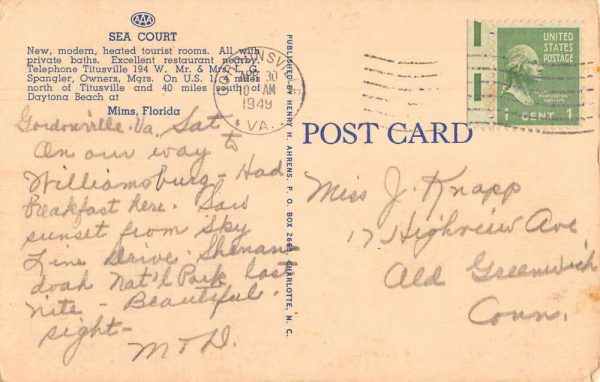 AAA
SEA COURT
New, modern, heated tourist rooms. All with
private baths. Excellent restaurant nearby.
Telephone Titusville 194 W. Mr. & Mrs. L. G.
Spangler, Owners, Mgrs. On U.S. 1, 4 miles
north of Titusville and 40 miles south of
Daytona Beach at
Mims, Florida
Gordonville, Va. Sat.
On our way to
Williamsburg - Had
breakfast here. Saw
sunset from Sky
Line Drive. Shenan
doah Nat'l Park last
nite - Beautiful
sight -
M & D.
PUBLISHED BY HENRY H. AHRENS, P. O. BOX 2661, CHARLOTTE, N. C.
GORDONSVILLE
APR 30
10 AM
1949
VA.
UNITED
STATES
POSTAGE
1 CENT 1
POST CARD
Miss J. Knapp
17 Highview Ave
Old Greenwich
Conn.